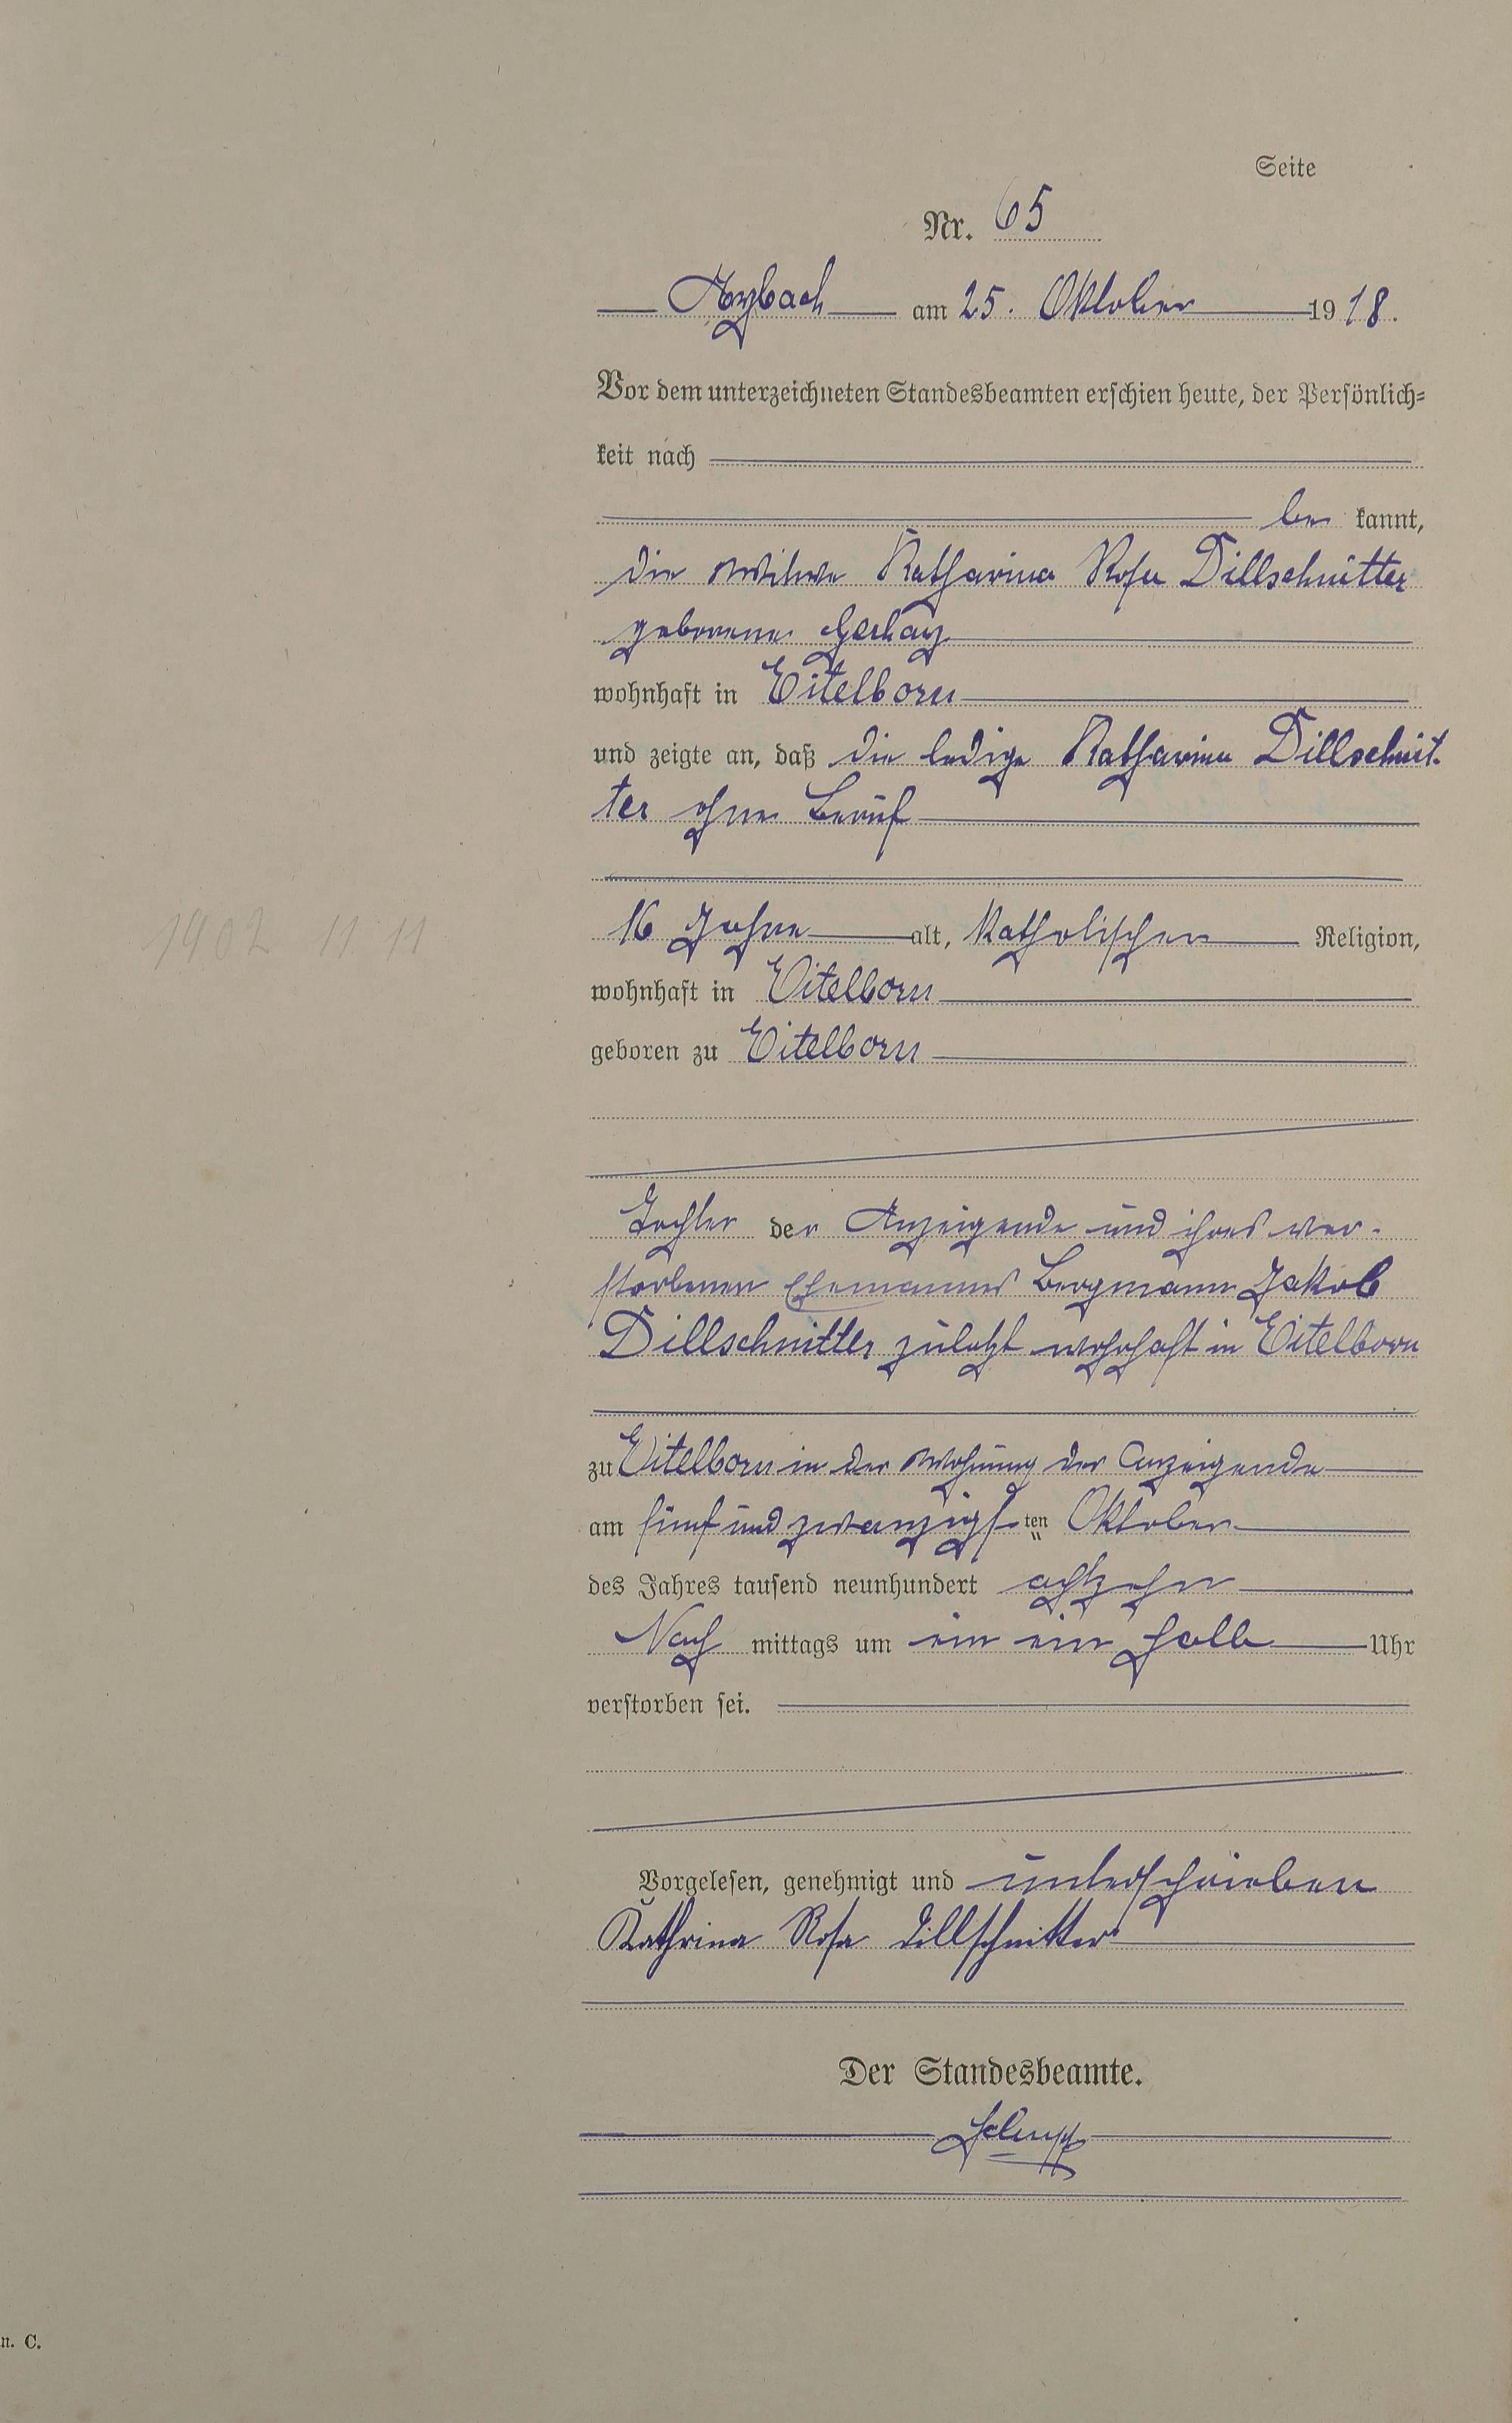 Seite
Nr. 65
Arzbach am 25. Oktober 1918.
Vor dem unterzeichneten Standesbeamten erschien heute, der Persönlich=
keit nach
be kannt,
die Witwe Katharina Rosa Dillschnitter
geborene Gerharz
wohnhaft in Eitelborn
und zeigte an, daß die ledige Katharina Dillschnit-
ter ohne Beruf
1902 11 11
16 Jahre alt, katholischer Religion,
wohnhaft in Eitelborn
geboren zu Eitelborn
Tochter der Anzeigende und ihres ver-
storbenen Ehemannes Bergmann Jakob
Dillschnitter zuletzt wohnhaft in Eitelborn
zu Eitelborn in der Wohnung der Anzeigende
am fünf und zwanzigs ten Oktober
des Jahres tausend neunhundert achtzehn
Nach mittags um ein ein halb Uhr
verstorben sei.
Vorgelesen, genehmigt und unterschrieben
Kathrina Rosa Dillschnitter
Der Standesbeamte.
n. C.